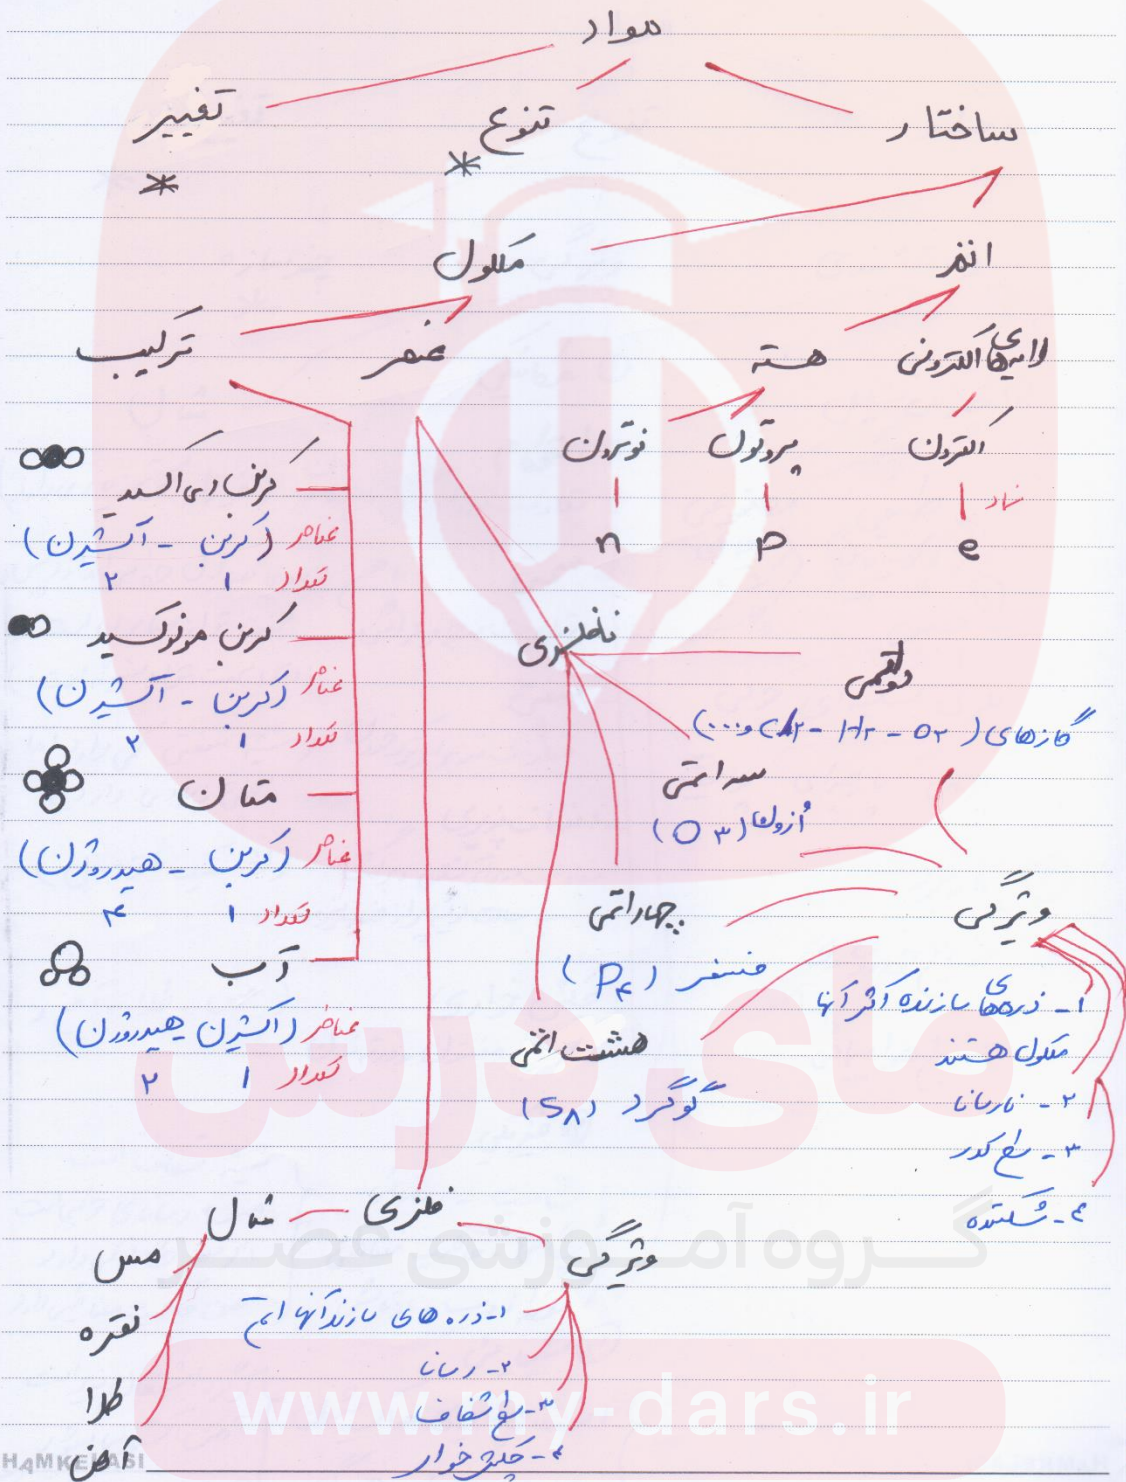 مواد
ساختار تنوع تغییر
* *
اتم مکلول
لایه‌های الکترونی هسته عنصر ترکیب
الکترون پروتون نوترون
نماد
e p n
کربن دی اکسید
عناصر (کربن - اکسیژن)
تعداد ۱ ۲
کربن مونوکسید
عناصر (کربن - اکسیژن)
تعداد ۱ ۲
متان
عناصر (کربن - هیدروژن)
تعداد ۱ ۴
آب
عناصر (اکسیژن - هیدروژن)
تعداد ۱ ۲
نافلزی
دواتمی
گازهای (O۲ - H۲ - Cl۲ و...)
سه اتمی
اُزون (O۳)
چهاراتمی
فسفر (P۴)
هشت اتمی
گوگرد (S۸)
ویژگی
۱- ذره‌های سازنده اکثر آنها
مکلول هستند
۲- نارسانا
۳- سطح کدر
۴- شکننده
فلزی
مثال
مس
نقره
طلا
آهن
ویژگی
۱- ذره های سازنده آنها اتم
۲- رسانا
۳- سطح شفاف
۴- چکش خوار
مای درس
گروه آموزشی عصر
www.my-dars.ir
HAMKELASI